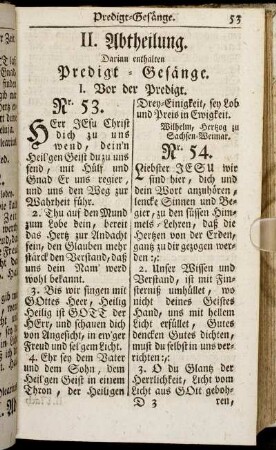 Predigt-Gesänge. 53
II. Abtheilung.
Darinn enthalten
Predigt-Gesänge.
I. Vor der Predigt.
Nr. 53.
HErr JEsu Christ
dich zu uns
wend, dein'n
Heil'gen Geist du zu uns
send, mit Hülf und
Gnad Er uns regier,
und uns den Weg zur
Wahrheit führ.
2. Thu auf den Mund
zum Lobe dein, bereit
das Hertz zur Andacht
fein, den Glauben mehr
stärck den Verstand, daß
uns dein Nam' werd
wohl bekannt.
3. Bis wir singen mit
GOttes Heer, Heilig
Heilig ist GOTT der
HErr, und schauen dich
von Angesicht, in ew'ger
Freud und sel'gem Licht.
4. Ehr sey dem Vater
und dem Sohn, dem
Heil'gen Geist in einem
Thron, der Heiligen
Drey-Einigkeit, sey Lob
und Preis in Ewigkeit.
Wilhelm, Hertzog zu
Sachsen-Weimar.
Nr. 54.
Liebster JESU wir
sind hier, dich und
dein Wort anzuhören,
lencke Sinnen und Be-
gier, zu den süssen Him-
mels-Lehren, daß die
Hertzen von der Erden,
gantz zu dir gezogen wer-
den :,:
2. Unser Wissen und
Verstand, ist mit Fin-
sterniß umhüllet, wo
nicht deines Geistes
Hand, uns mit hellem
Licht erfüllet, Gutes
dencken Gutes dichten,
must du selbst in uns ver-
richten :,:
3. O du Glantz der
Herrlichkeit, Licht vom
Licht aus GOtt geboh-
D 3 ren,